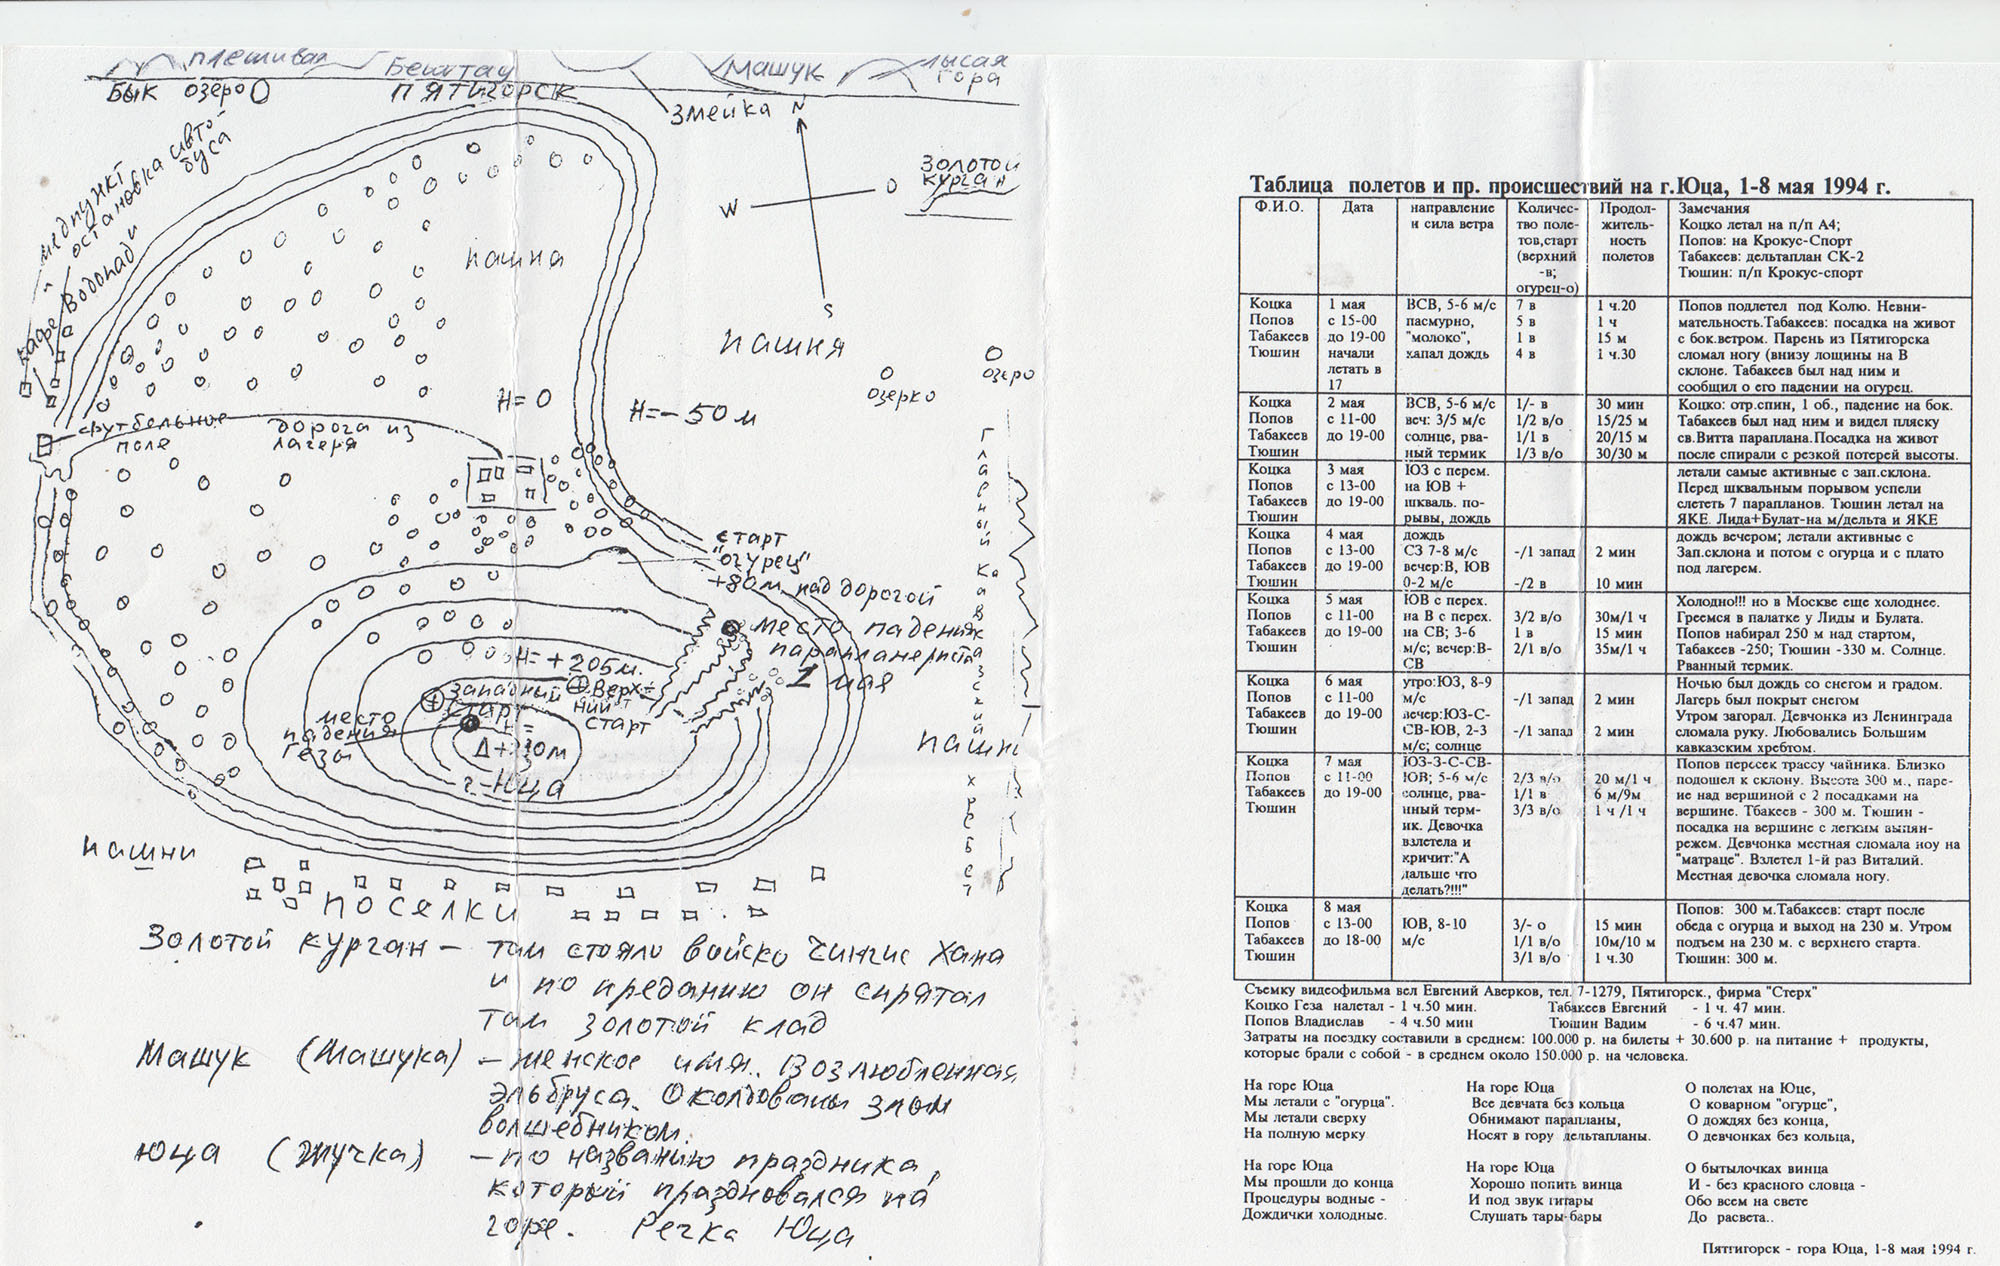 плешивая
Бештау
Машук
Лысая
гора
Бык озеро
Пятигорск
Змейка
N
W
O
S
Золотой
курган
медпункт
и остановка авто-
буса
Кафе Водопад и
пашня
пашня
озерко
озеро
H=0
H=-50м
футбольное
поле
дорога из
лагеря
Главный Кавказский хребет
старт
"огурец"
+80м над дорогой
место падения
парапланериста
1 мая
H=+205м.
Западный
старт
Верх-
ний
старт
место
падения
Гезы
H=
Δ+230м
г-Юца
пашни
пашни
поселки
Золотой курган – там стояло войско Чингис Хана
и по преданию он спрятал
там золотой клад
Машук (Машука) – женское имя. Возлюбленная
Эльбруса. Околдованы злым
волшебником.
Юца (Жучка) – по названию праздника,
который праздновался на
горе. Речка Юца
Таблица полетов и пр. происшествий на г.Юца, 1-8 мая 1994 г.
Ф.И.О. Дата направление Количес- Продол- Замечания
и сила ветра тво поле- житель- Коцко летал на п/п А4;
тов,старт ность Попов: на Крокус-Спорт
(верхний полетов Табакеев: дельтаплан СК-2
-в; Тюшин: п/п Крокус-спорт
огурец-о)
Коцка 1 мая ВСВ, 5-6 м/с 7 в 1 ч.20 Попов подлетел под Колю. Невни-
Попов с 15-00 пасмурно, 5 в 1 ч мательность.Табакеев: посадка на живот
Табакеев до 19-00 "молоко", 1 в 15 м с бок.ветром. Парень из Пятигорска
Тюшин начали капал дождь 4 в 1 ч.30 сломал ногу (внизу лощины на В
летать в склоне. Табакеев был над ним и
17 сообщил о его падении на огурец.
Коцка 2 мая ВСВ, 5-6 м/с 1/- в 30 мин Коцко: отр.спин, 1 об., падение на бок.
Попов с 11-00 веч: 3/5 м/с 1/2 в/о 15/25 м Табакеев был над ним и видел пляску
Табакеев до 19-00 солнце, рва- 1/1 в 20/15 м св.Витта параплана.Посадка на живот
Тюшин ный термик 1/3 в/о 30/30 м после спирали с резкой потерей высоты.
Коцка 3 мая ЮЗ с перем. летали самые активные с зап.склона.
Попов с 13-00 на ЮВ + Перед шквальным порывом успели
Табакеев до 19-00 шкваль. по- слететь 7 парапланов. Тюшин летал на
Тюшин рывы, дождь ЯКЕ. Лида+Булат-на м/дельта и ЯКЕ
Коцка 4 мая дождь дождь вечером; летали активные с
Попов с 13-00 СЗ 7-8 м/с -/1 запад 2 мин Зап.склона и потом с огурца и с плато
Табакеев до 19-00 вечер:В, ЮВ под лагерем.
Тюшин 0-2 м/с -/2 в 10 мин
Коцка 5 мая ЮВ с перех. Холодно!!! но в Москве еще холоднее.
Попов с 11-00 на В с перех. 3/2 в/о 30м/1 ч Греемся в палатке у Лиды и Булата.
Табакеев до 19-00 на СВ; 3-6 1 в 15 мин Попов набирал 250 м над стартом,
Тюшин м/с; вечер:В- 2/1 в/о 35м/1 ч Табакеев -250; Тюшин -330 м. Солнце.
СВ Рванный термик.
Коцка 6 мая утро:ЮЗ, 8-9 Ночью был дождь со снегом и градом.
Попов с 11-00 м/с -/1 запад 2 мин Лагерь был покрыт снегом
Табакеев до 19-00 вечер:ЮЗ-С- Утром загорал. Девчонка из Ленинграда
Тюшин СВ-ЮВ, 2-3 -/1 запад 2 мин сломала руку. Любовались Большим
м/с; солнце кавказским хребтом.
Коцка 7 мая ЮЗ-З-С-СВ- Попов пересек трассу чайника. Близко
Попов с 11-00 ЮВ; 5-6 м/с 2/3 в/о 20 м/1 ч подошел к склону. Высота 300 м., паре-
Табакеев до 19-00 солнце, рва- 1/1 в 6 м/9м ние над вершиной с 2 посадками на
Тюшин нный терм- 3/3 в/о 1 ч /1 ч вершине. Тбакеев - 300 м. Тюшин -
ик. Девочка посадка на вершине с легким выпян-
взлетела и режем. Девчонка местная сломала ноу на
кричит:"А "матраце". Взлетел 1-й раз Виталий.
дальше что Местная девочка сломала ногу.
делать?!!!"
Коцка 8 мая Попов: 300 м.Табакеев: старт после
Попов с 13-00 ЮВ, 8-10 3/- о 15 мин обеда с огурца и выход на 230 м. Утром
Табакеев до 18-00 м/с 1/1 в/о 10м/10 м подъем на 230 м. с верхнего старта.
Тюшин 3/1 в/о 1 ч.30 Тюшин: 300 м.
Съемку видеофильма вел Евгений Аверков, тел. 7-1279, Пятигорск., фирма "Стерх"
Коцко Геза налетал - 1 ч.50 мин. Табакеев Евгений - 1 ч. 47 мин.
Попов Владислав - 4 ч.50 мин Тюшин Вадим - 6 ч.47 мин.
Затраты на поездку составили в среднем: 100.000 р. на билеты + 30.600 р. на питание + продукты,
которые брали с собой - в среднем около 150.000 р. на человека.
На горе Юца
Мы летали с "огурца".
Мы летали сверху
На полную мерку
На горе Юца
Все девчата без кольца
Обнимают парапланы,
Носят в гору дельтапланы.
О полетах на Юце,
О коварном "огурце",
О дождях без конца,
О девчонках без кольца,
На горе Юца
Мы прошли до конца
Процедуры водные -
Дождички холодные.
На горе Юца
Хорошо попить винца
И под звук гитары
Слушать тары-бары
О бытылочках винца
И - без красного словца -
Обо всем на свете
До расвета..
Пятгигорск - гора Юца, 1-8 мая 1994 г.